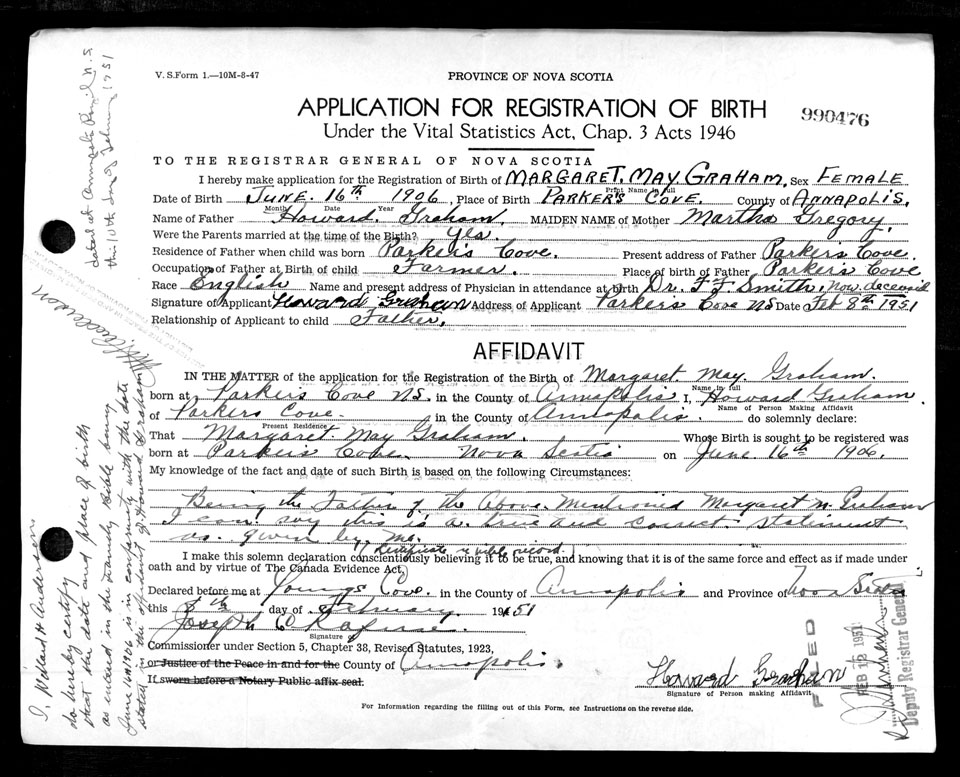 V. S. Form 1.—10M-8-47
PROVINCE OF NOVA SCOTIA
APPLICATION FOR REGISTRATION OF BIRTH
990476
Under the Vital Statistics Act, Chap. 3 Acts 1946
TO THE REGISTRAR GENERAL OF NOVA SCOTIA
I hereby make application for the Registration of Birth of MARGARET. MAY. GRAHAM. Sex FEMALE
Print Name in full
Date of Birth JUNE. 16th 1906, Place of Birth PARKER'S COVE. County of ANNAPOLIS.
Month Date Year
Name of Father Howard Graham. MAIDEN NAME of Mother Martha Gregory.
Were the Parents married at the time of the Birth? Yes.
Residence of Father when child was born Parkers Cove. Present address of Father Parkers Cove.
Occupation of Father at Birth of child Farmer. Place of birth of Father Parkers Cove
Race English Name and present address of Physician in attendance at birth Dr. F F Smith, now deceased
Signature of Applicant Howard Graham Address of Applicant Parkers Cove NS Date Feb 8th 1951
Relationship of Applicant to child Father.
AFFIDAVIT
IN THE MATTER of the application for the Registration of the Birth of Margaret. May. Graham.
Name in full
born at Parkers Cove NS. in the County of Annapolis I, Howard Graham.
Name of Person Making Affidavit
of Parkers Cove. in the County of Annapolis. do solemnly declare:
Present Residence
That Margaret May Graham. Whose Birth is sought to be registered was
born at Parkers Cove Nova Scotia on June 16th 1906.
My knowledge of the fact and date of such Birth is based on the following Circumstances:
Being the Father of the Above Mentioned Margaret M. Graham
I can say this is a true and correct statement
as given by me.
Certificate & bible record.
I make this solemn declaration conscientiously believing it to be true, and knowing that it is of the same force and effect as if made under
oath and by virtue of The Canada Evidence Act.
Declared before me at Youngs Cove in the County of Annapolis and Province of Nova Scotia
this 8th day of February 1951
Joseph
Signature of
Commissioner under Section 5, Chapter 38, Revised Statutes, 1923,
or Justice of the Peace in and for the County of Annapolis.
If sworn before a Notary Public affix seal.
Howard Graham
Signature of Person making Affidavit
For Information regarding the filling out of this Form, see Instructions on the reverse side.
FILED
FEB 15 1951
Deputy Registrar General
I, Willard H Anderson
do hereby certify
that the date and place of birth
as entered in the family Bible being
June 16th 1906 is in conformity with the date
stated in the affidavit of Howard Graham
dated at Annapolis Royal N.S
this 10th day of February 1951